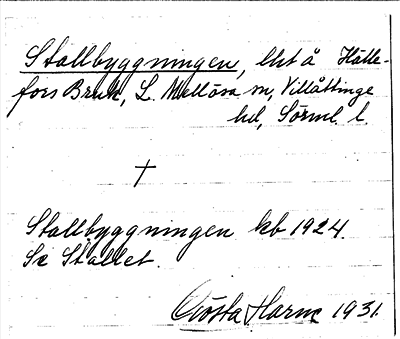 Stallbyggningen, lht å Hälle-
fors Bruk, L. Mellösa sn, Villåttinge
hd, Sörml. l.
†
Stallbyggningen kb 1924.
Se Stallet.
Gösta Harne 1931.